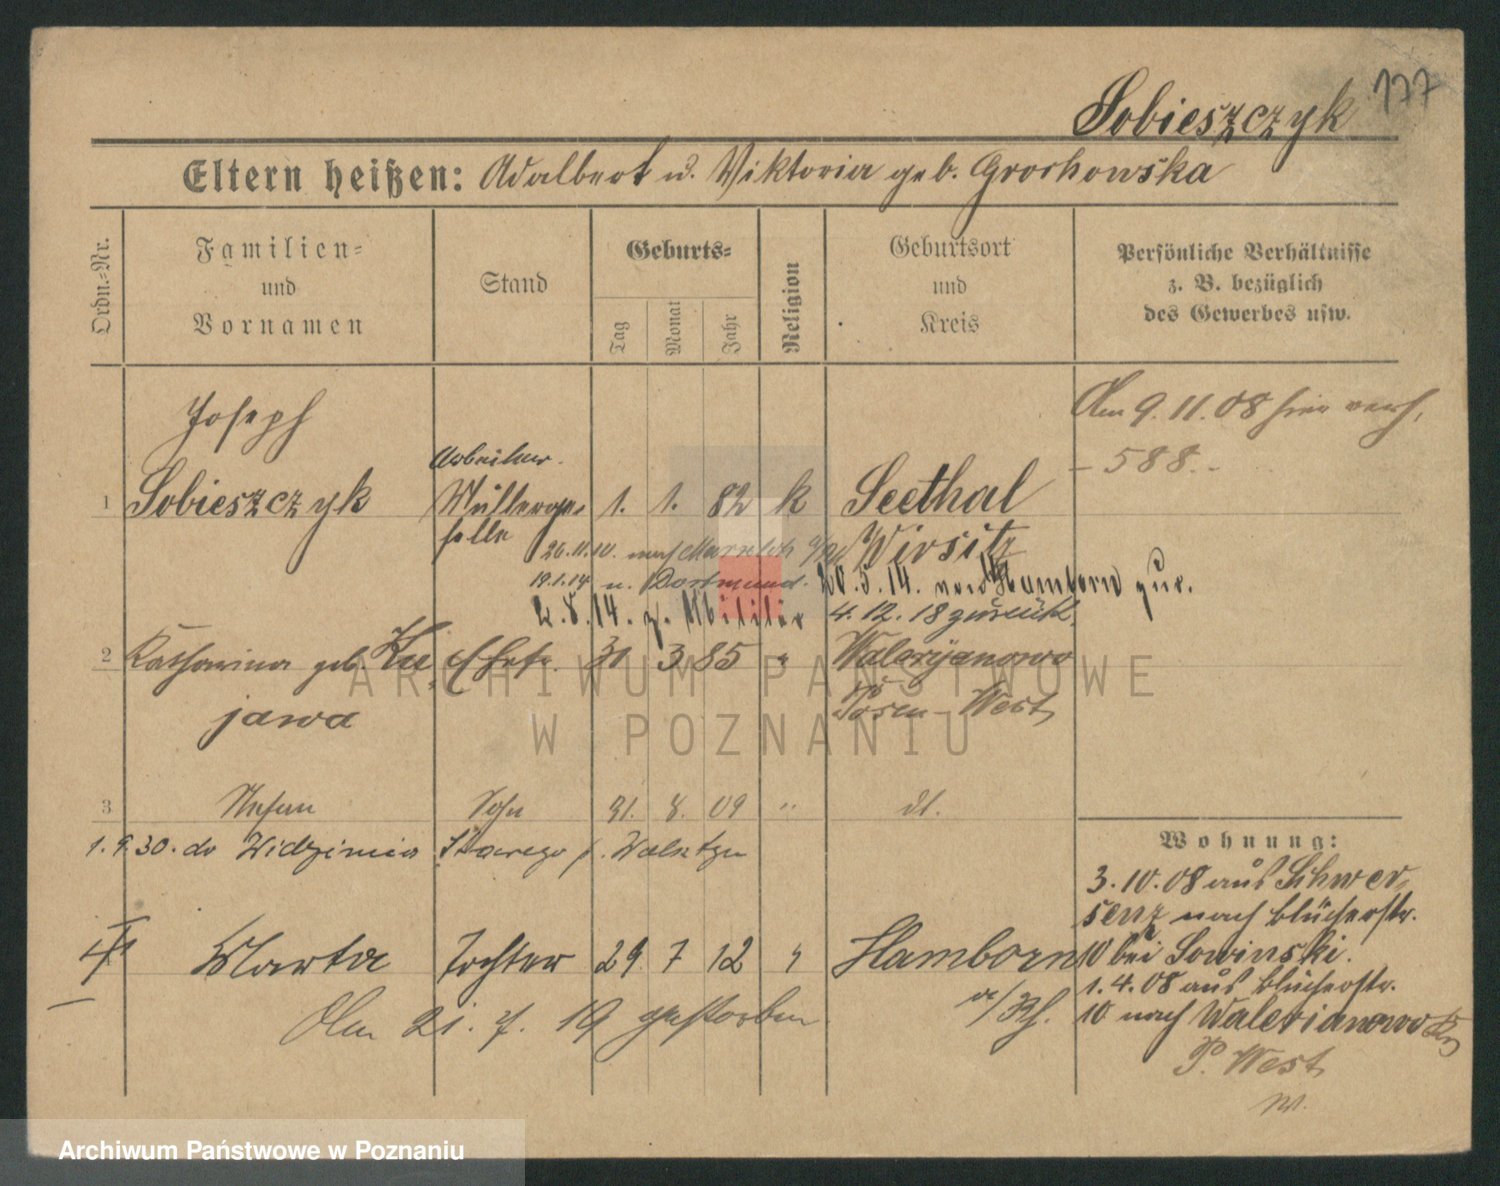 177
Sobieszczyk
Eltern heißen: Adalbert u. Viktoria geb. Grochowska
Ordn.-Nr.
Familien- und Vornamen
Stand
Geburts-
Tag Monat Jahr
Religion
Geburtsort und Kreis
Persönliche Verhältnisse z. B. bezüglich des Gewerbes usw.
Am 9.11.08 hier verh.
- 588. -
Joseph
Arbeiter.
1 Sobieszczyk Müllerge- 1. 1. 82 k Seethal
selle Wirsitz
26.11.10. nach Marxloh
19.1.14 n. Dortmund. 20.5.14. von Hamborn zur.
2.8.14. z. Militär 4.12.18 zurück.
2 Katharina geb. Ku- Ehefr. 31 3 85 " Walerijanowo
jawa Posen-West
3 Stefan Sohn 31. 8. 09 " dt.
1.9.30. do Widzimia Starego
4 Marta Tochter 29 7 12 " Hamborn
a/Rh.
Am 21. 7. 19 gestorben
Wohnung:
3.10.08 aus Schwer-
senz nach Blücherstr.
10 bei Sowinski.
1.4.08 aus Blücherstr.
10 nach Walerianowo
P. West
ARCHIWUM PAŃSTWOWE
W POZNANIU
Archiwum Państwowe w Poznaniu